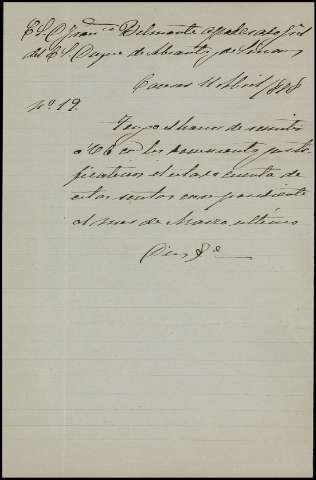 Sr. D. Franco. Belmonte apoderado Gral
del E. S. Duque de Abrantes y de Linares
Caceres 11 Abril /898
No. 19.
Tengo el honor de remitir
a Vd con los documentos justi-
ficativos el
cuenta de
estas rentas correspondiente
al mes de Marzo último
Dios &a